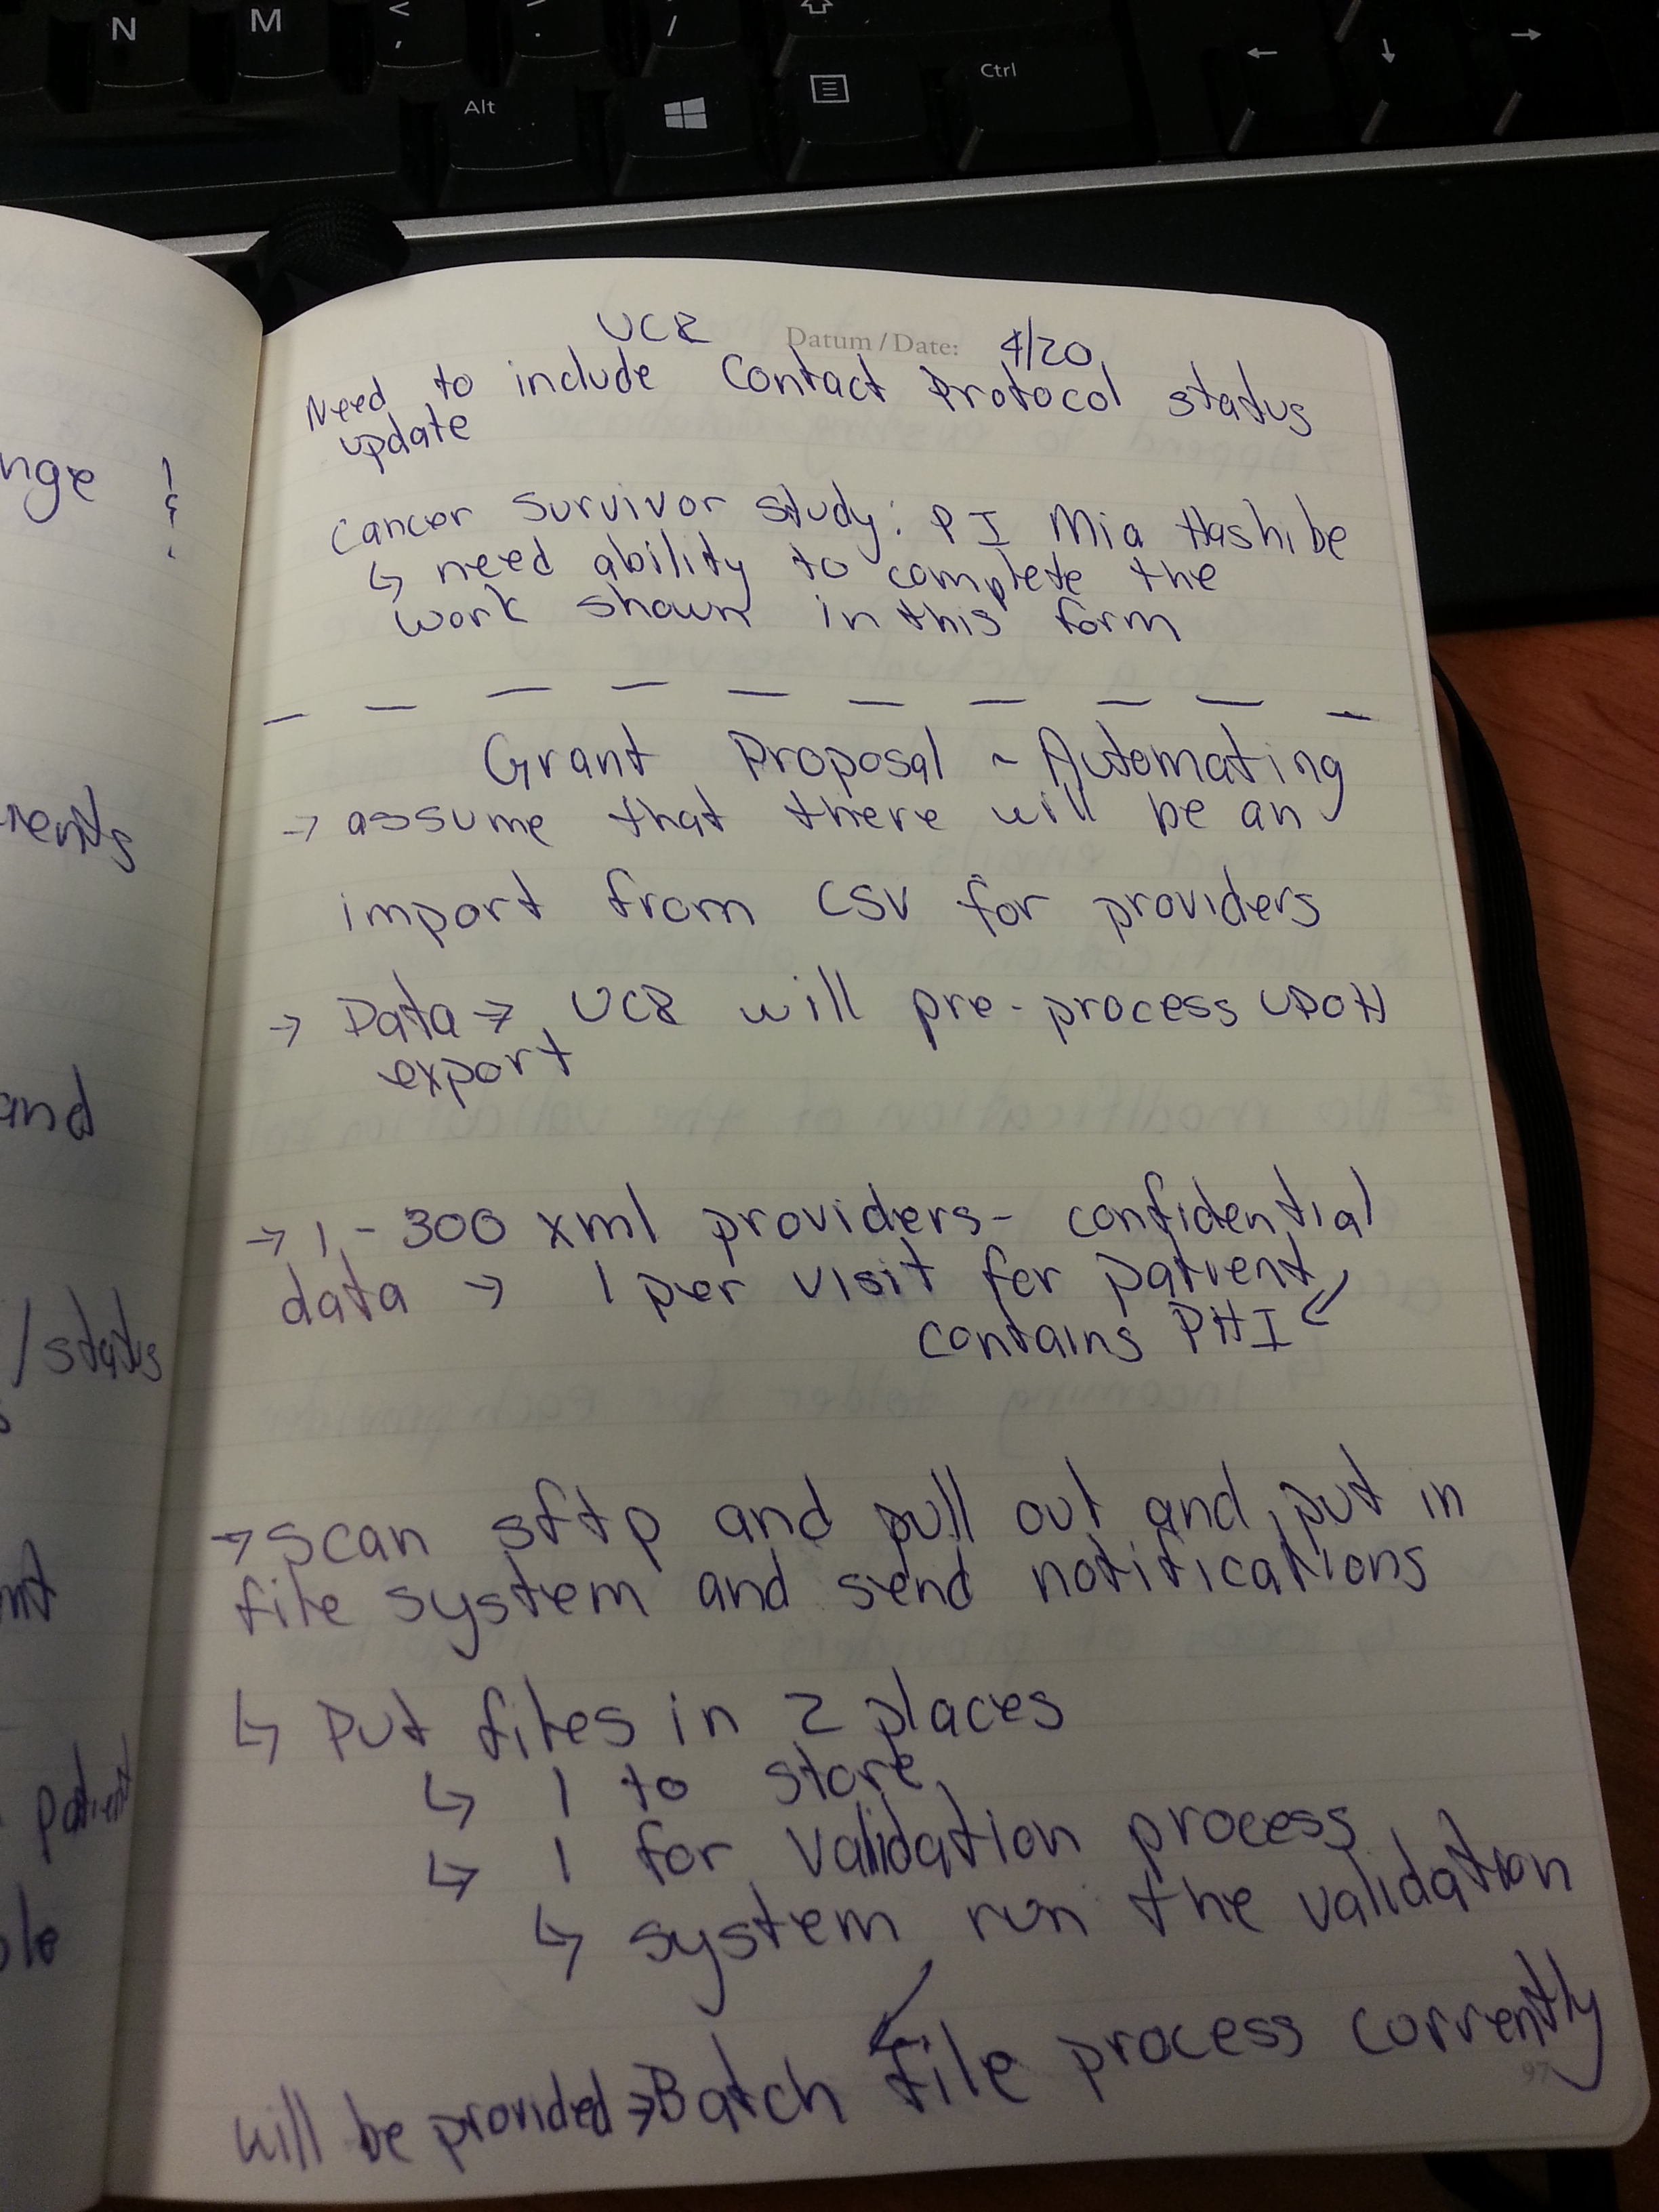 N M < , > . / Alt Ctrl ← ↓ →
UCR Datum / Date: 4/20
Need to include Contact Protocol status
update
Cancer Survivor study: PI Mia Hashibe
↳ need ability to complete the
work shown in this form
Grant Proposal ~ Automating
→ assume that there will be an
import from CSV for providers
→ Data → UCR will pre-process UDOH
export
→ 1 - 300 xml providers - confidential
data → 1 per visit for patient
contains PHI
→ scan sftp and pull out and put in
file system and send notifications
↳ Put files in 2 places
↳ 1 to store
↳ 1 for validation process
↳ system run the validation
will be provided → Batch file process currently
97
nge
ments
and
/ status
patient